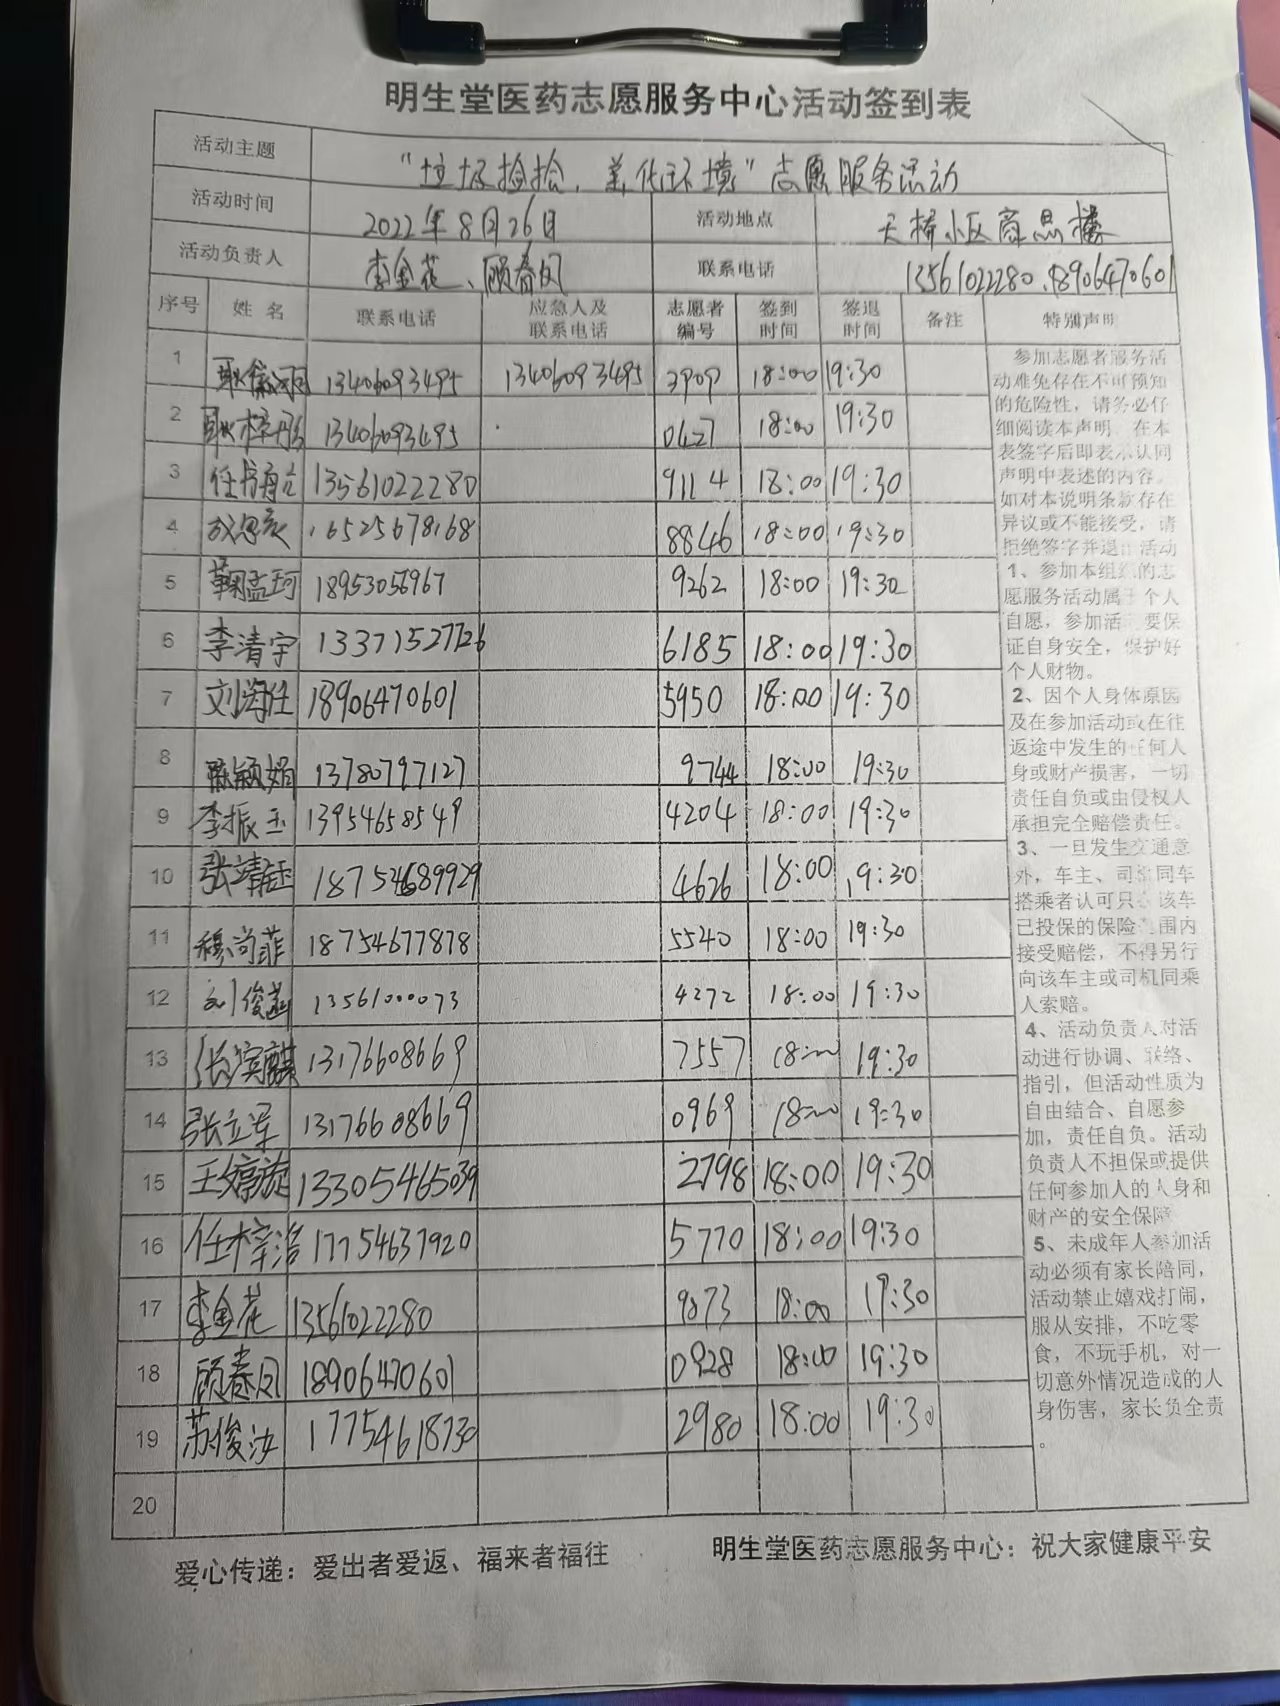 明生堂医药志愿服务中心活动签到表
活动主题 “垃圾捡拾，美化环境”志愿服务活动
活动时间 2022年8月26日 活动地点 天桥小区商品楼
活动负责人 李金花、顾春凤 联系电话 13561022280、18906470601
序号 姓名 联系电话 应急人及联系电话 志愿者编号 签到时间 签退时间 备注 特别声明
1 13406093495 13406093495 3909 18:00 19:30
2 耿梓彤 13406093495 0427 18:00 19:30
3 13561022280 9114 18:00 19:30
4 16525678168 8846 18:00 19:30
5 鞠孟珂 18953056967 9262 18:00 19:30
6 李清宇 13371527726 6185 18:00 19:30
7 18906470601 5950 18:00 19:30
8 陈颖娟 13780797127 9744 18:00 19:30
9 李振玉 13954658549 4204 18:00 19:30
10 张靖钰 18754689929 4626 18:00 19:30
11 穆尚菲 18754677878 5540 18:00 19:30
12 刘俊 13561000073 4272 18:00 19:30
13 张宾麒 13176608669 7557 18:00 19:30
14 张立军 13176608669 0969 18:00 19:30
15 王婷旋 13305465039 2798 18:00 19:30
16 任梓浩 17754637920 5770 18:00 19:30
17 李金花 13561022280 9873 18:00 19:30
18 顾春凤 18906470601 0928 18:00 19:30
19 苏俊汝 17754618730 2980 18:00 19:30
20
参加志愿者服务活
动难免存在不可预知
的危险性，请务必仔
细阅读本声明，在本
表签字后即表示认同
声明中表述的内容。
如对本说明条款存在
异议或不能接受，请
拒绝签字并退出活动
1、参加本组织的志
愿服务活动属于个人
自愿，参加活动要保
证自身安全，保护好
个人财物。
2、因个人身体原因
及在参加活动或在往
返途中发生的任何人
身或财产损害，一切
责任自负或由侵权人
承担完全赔偿责任。
3、一旦发生交通意
外，车主、司机同车
搭乘者认可只在该车
已投保的保险范围内
接受赔偿，不得另行
向该车主或司机同乘
人索赔。
4、活动负责人对活
动进行协调、联络、
指引，但活动性质为
自由结合、自愿参
加，责任自负。活动
负责人不担保或提供
任何参加人的人身和
财产的安全保障
5、未成年人参加活
动必须有家长陪同，
活动禁止嬉戏打闹，
服从安排，不吃零
食，不玩手机，对一
切意外情况造成的人
身伤害，家长负全责
。
爱心传递：爱出者爱返、福来者福往 明生堂医药志愿服务中心：祝大家健康平安